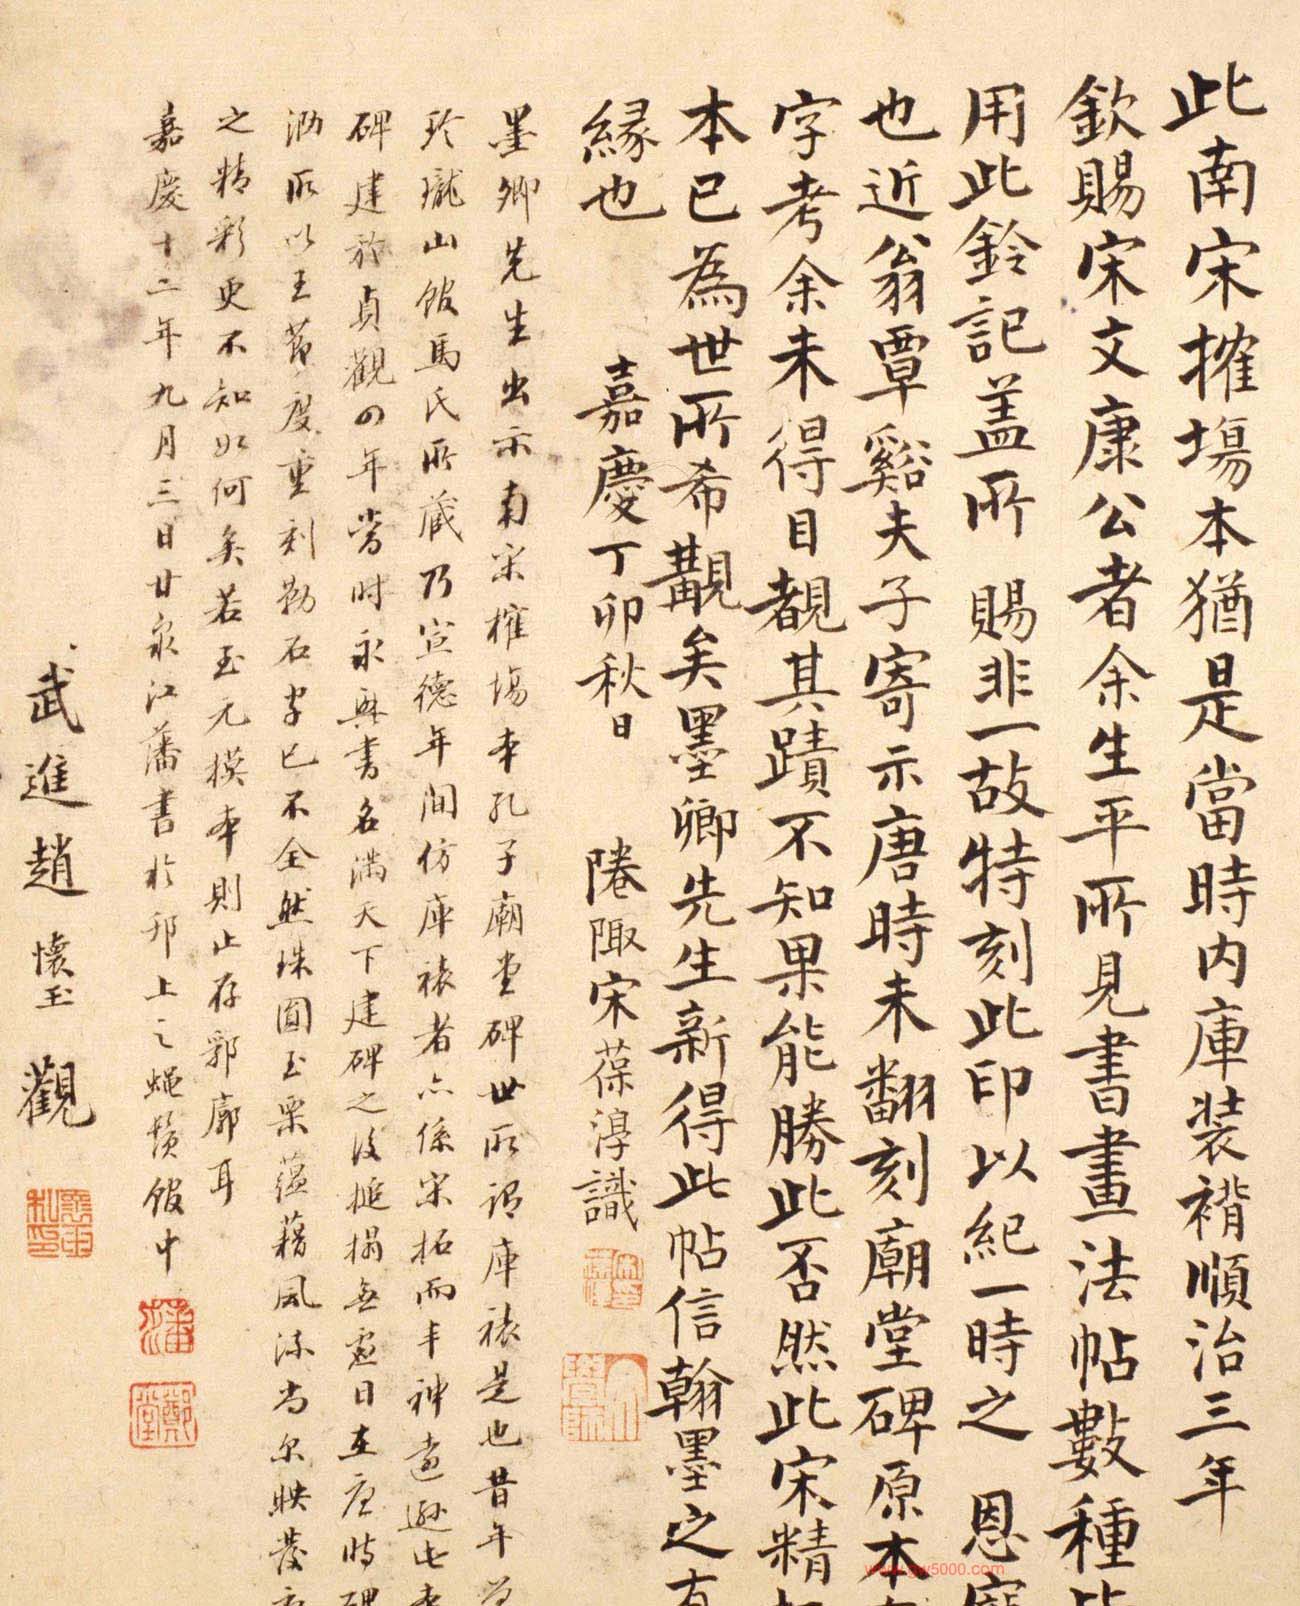 此南宋搉塲本猶是當時内庫装褙順治三年
欽賜宋文康公者余生平所見書畫法帖數種皆
用此鈐記盖所賜非一故特刻此印以紀一時之恩寵
也近翁覃谿夫子寄示唐時未翻刻廟堂碑原本
字考余未得目覩其蹟不知果能勝此否然此宋精拓
本已為世所希覯矣墨卿先生新得此帖信翰墨之有
緣也
嘉慶丁卯秋日
陸陬宋葆淳識
墨卿先生出示南宋榷塲本孔子廟堂碑世所謂庫裱是也昔年曾
玲瓏山館馬氏所藏乃宣德年間仿庫裱者亦係宋拓而丰神遠遜此本
碑建於貞觀四年當時永興書名滿天下建碑之後搥搨無虛日在唐時碑
泐所以王節度重刻勒石字已不全然珠圓玉栗蘊藉風流尚尔映發
之精彩更不知如何矣若至元摸本則止存郭廓耳
嘉慶十二年九月三日甘泉江藩書於邗上之蠅鬚館中
武進趙懷玉觀
www.gw5000.com